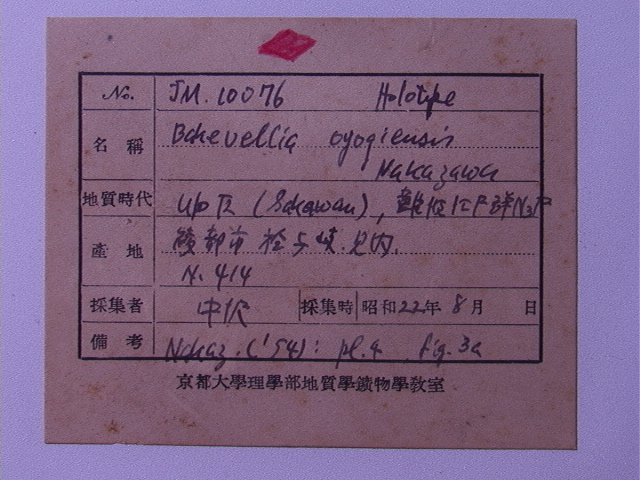 No. JM. 10076 Holotype
名稱 Bakevellia oyogiensis
Nakazawa
地質時代 Up R (Sakawan), 難波江層群N3
產地 綾都市 於与岐. 見内.
N. 414
採集者 中沢 採集時 昭和22年 8月 日
備考 Nakaz. ('54): pl.4 fig. 3a
京都大學理學部地質學鑛物學敎室